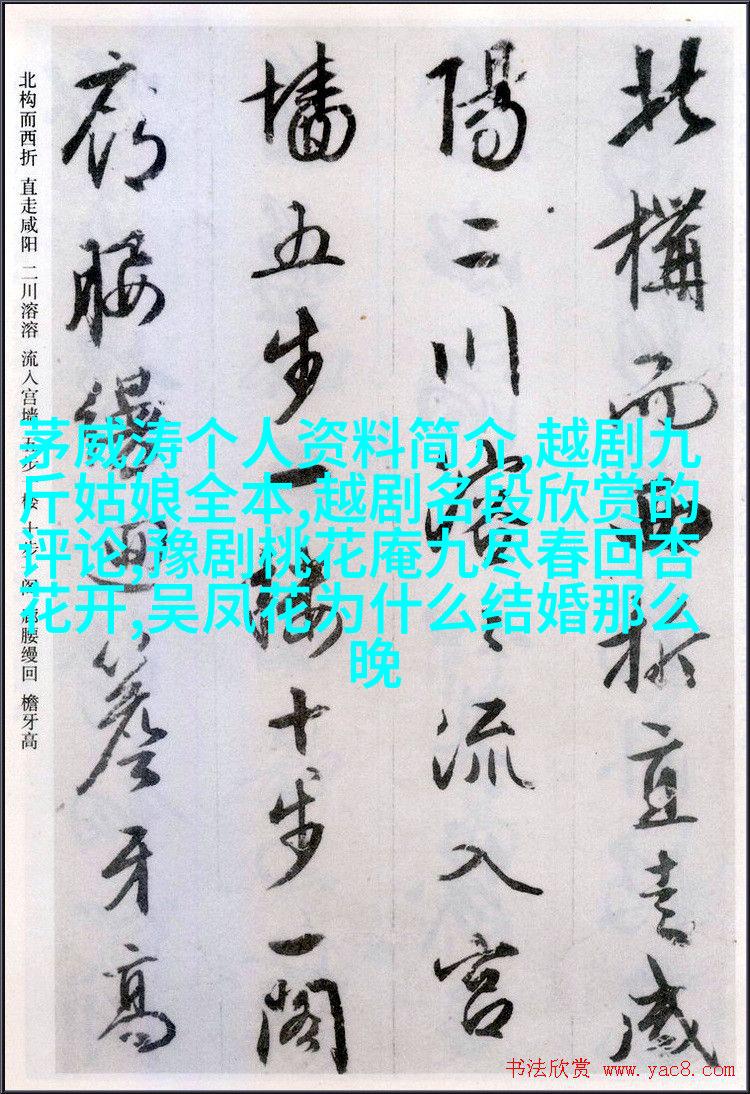 北構而西折直走咸
陽二川溶〻流入宮
墻五步一樓十步一閣
廊腰縵迴簷牙高
北构而西折 直走咸阳 二川溶溶 流入宫墙 五步一楼 十步一阁 廊腰缦回 檐牙高
茅威涛个人资料简介,越剧九
斤姑娘全本,越剧名段欣赏的
评论,豫剧桃花庵九尽春回杏
花开,吴凤花为什么结婚那么
晚
书法欣赏 www.yac8.com